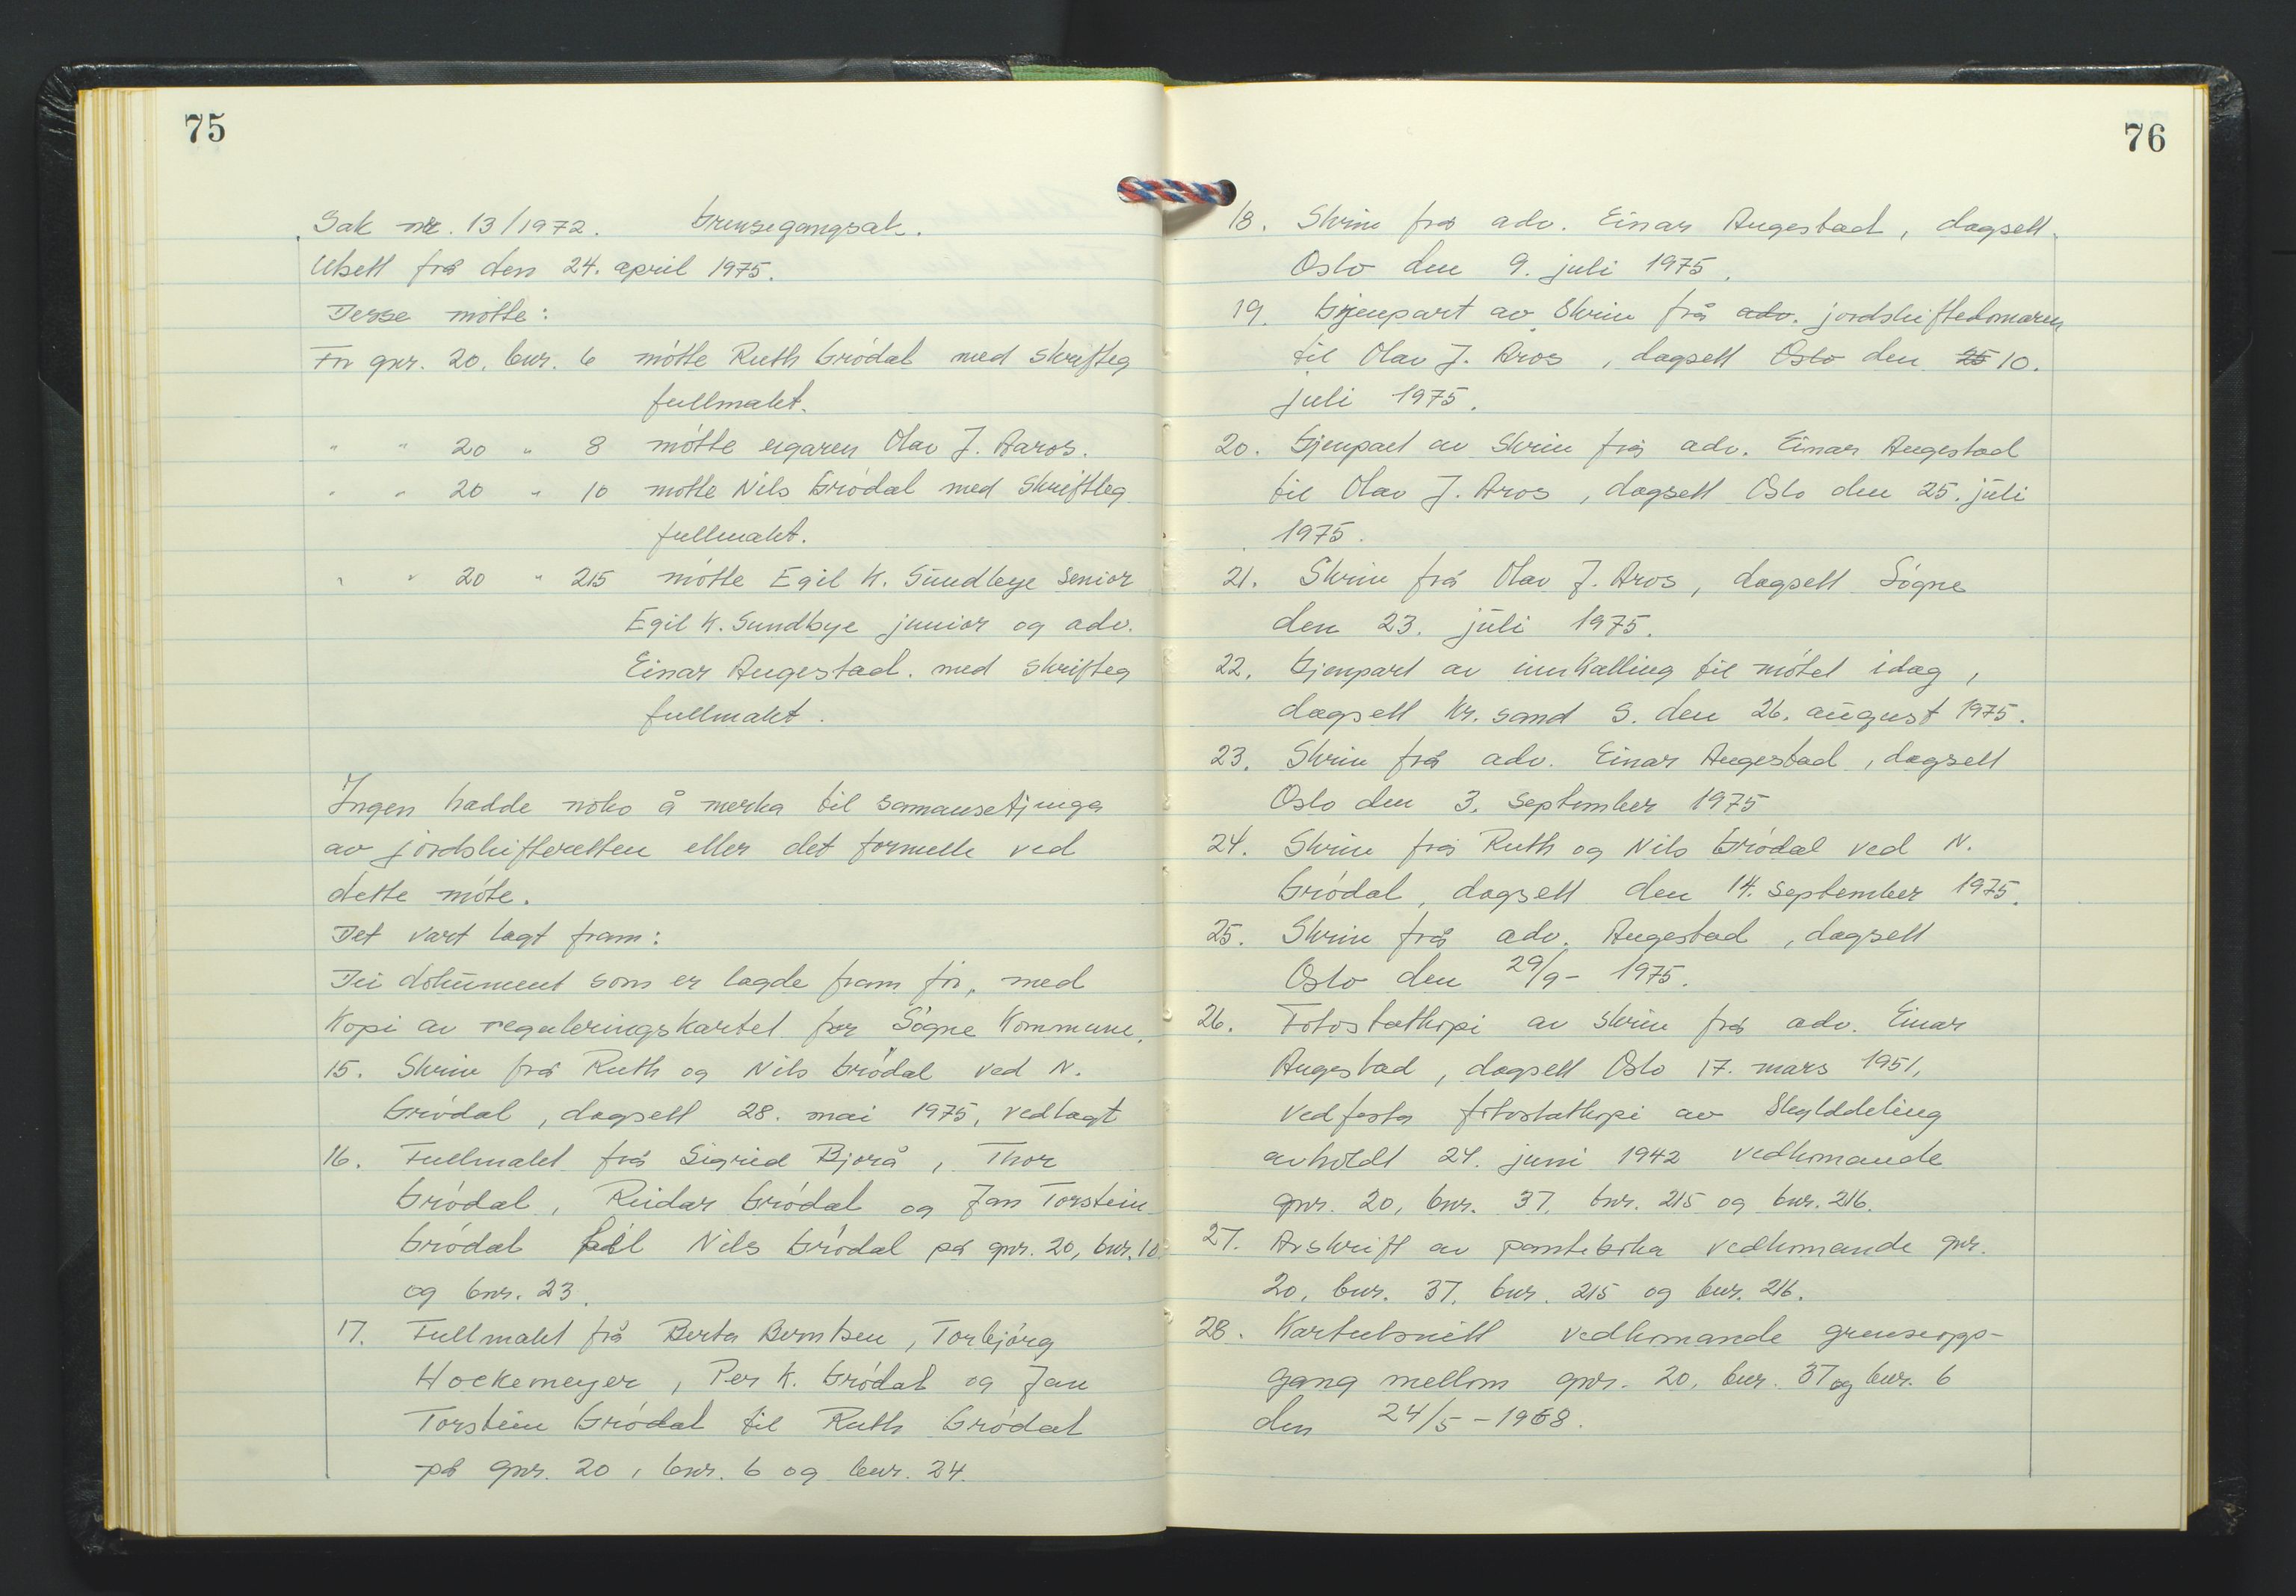 75
Sak nr. 13/1972. Grensegangsak.
Utsett frå den 24. april 1975.
Desse møtte:
For gnr. 20. bnr. 6 møtte Ruth Grödal med skrifteg
fullmakt.
" " 20 " 8 møtte eigaren Olav J. Aaros.
" " 20 " 10 møtte Nils Grödal med Skriftleg
fullmakt.
" " 20 " 215 møtte Egil K. Sundbye Senior
Egil K. Sundbye junior og adv.
Einar Augestad. med skrifteg
fullmakt.
Ingen hadde noko å merka til samansetjinga
av jordskifteretten eller det formelle ved
dette møte.
Det vart lagt fram:
Dei dokument som er lagde fram før, med
Kopi av reguleringskartet for Søgne Kommune.
15. Skriv frå Ruth og Nils Grödal ved N.
Grödal, dagsett 28. mai 1975, vedlagt
16. Fullmakt frå Sigrid Bjorå, Thor
Grödal, Reidar Grödal og Jan Torstein
Grödal til Nils Grödal på gnr. 20, bnr. 10
og bnr. 23.
17. Fullmakt frå Berta Berntsen, Torbjørg
Hockemeyer, Per K. Grödal og Jan
Torstein Grödal til Ruth Grödal
på gnr. 20, bnr. 6 og bnr. 24.
76
18. Skriv frå adv. Einar Augestad, dagsett
Oslo den 9. juli 1975.
19. Gjenpart av Skriv frå adv. jordskiftedomaren
til Olav J. Aros, dagsett Oslo den 25 10.
juli 1975.
20. Gjenpart av Skriv frå adv. Einar Augestad
til Olav J. Aros, dagsett Oslo den 25. juli
1975.
21. Skriv frå Olav J. Aros, dagsett Søgne
den 23. juli 1975.
22. Gjenpart av innkalling til møtet idag,
dagsett Kr. sand S. den 26. august 1975.
23. Skriv frå adv. Einar Augestad, dagsett
Oslo den 3. september 1975
24. Skriv frå Ruth og Nils Grödal ved N.
Grödal, dagsett den 14. september 1975.
25. Skriv frå adv. Augestad, dagsett
Oslo den 29/9- 1975.
26. Fotostatkopi av skriv frå adv. Einar
Augestad, dagsett Oslo 17. mars 1951,
vedfesta fotostatkopi av Skylddeling
avholdt 24. juni 1942 vedkomande
gnr. 20, bnr. 37. bnr. 215 og bnr. 216.
27. Avskrift av panteboka vedkomande gnr.
20, bnr. 37, bnr. 215 og bnr. 216.
28. Kartutsnitt vedkomande grenseopp-
gang mellom gnr. 20, bnr. 37 og bnr. 6
den 24/5-1968.